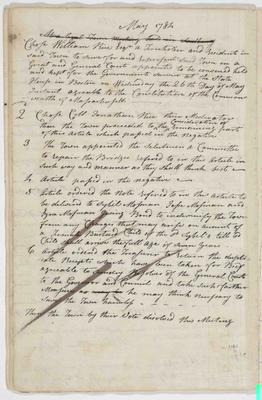 May 1784
Chose William Hine Esqr a Freeholder and Resident in
said Town to serve for and represent said Town in a
Great and General Court appointed to be convened held
and kept for the Government's service at the State
House in Boston on Wednesday the 26th Day of May
Instant agreable to the Constitution of the Common
wealth of Massachusetts.
2 Chose Colt Jonathan Hine their Moderator
then the Town proceeded to the Consideration of the remaining part
of this Article which passed in the Negative.
3 The Town appointed the Selectmen a Committee
to repair the Bridges refered to in this Article in
Such way and manner as they shall think best
4 Article passed in the negative
5 Article ordered the Note refered to in this article to
be delivered to
giving Bond to indemnify the Town
from any Charges that may arise on account of
a Bastard Child of the sd till sd
Child shall arrive the full age of Seven Years
6 Article directed the Treasurer to return the
Receipts which have been taken for
agreable to Resolves of the General Court
to the Governor and Council and take such further
Measures as he may think necessary to
Save the Town harmless
Then the Town by their Vote disolved this Meeting